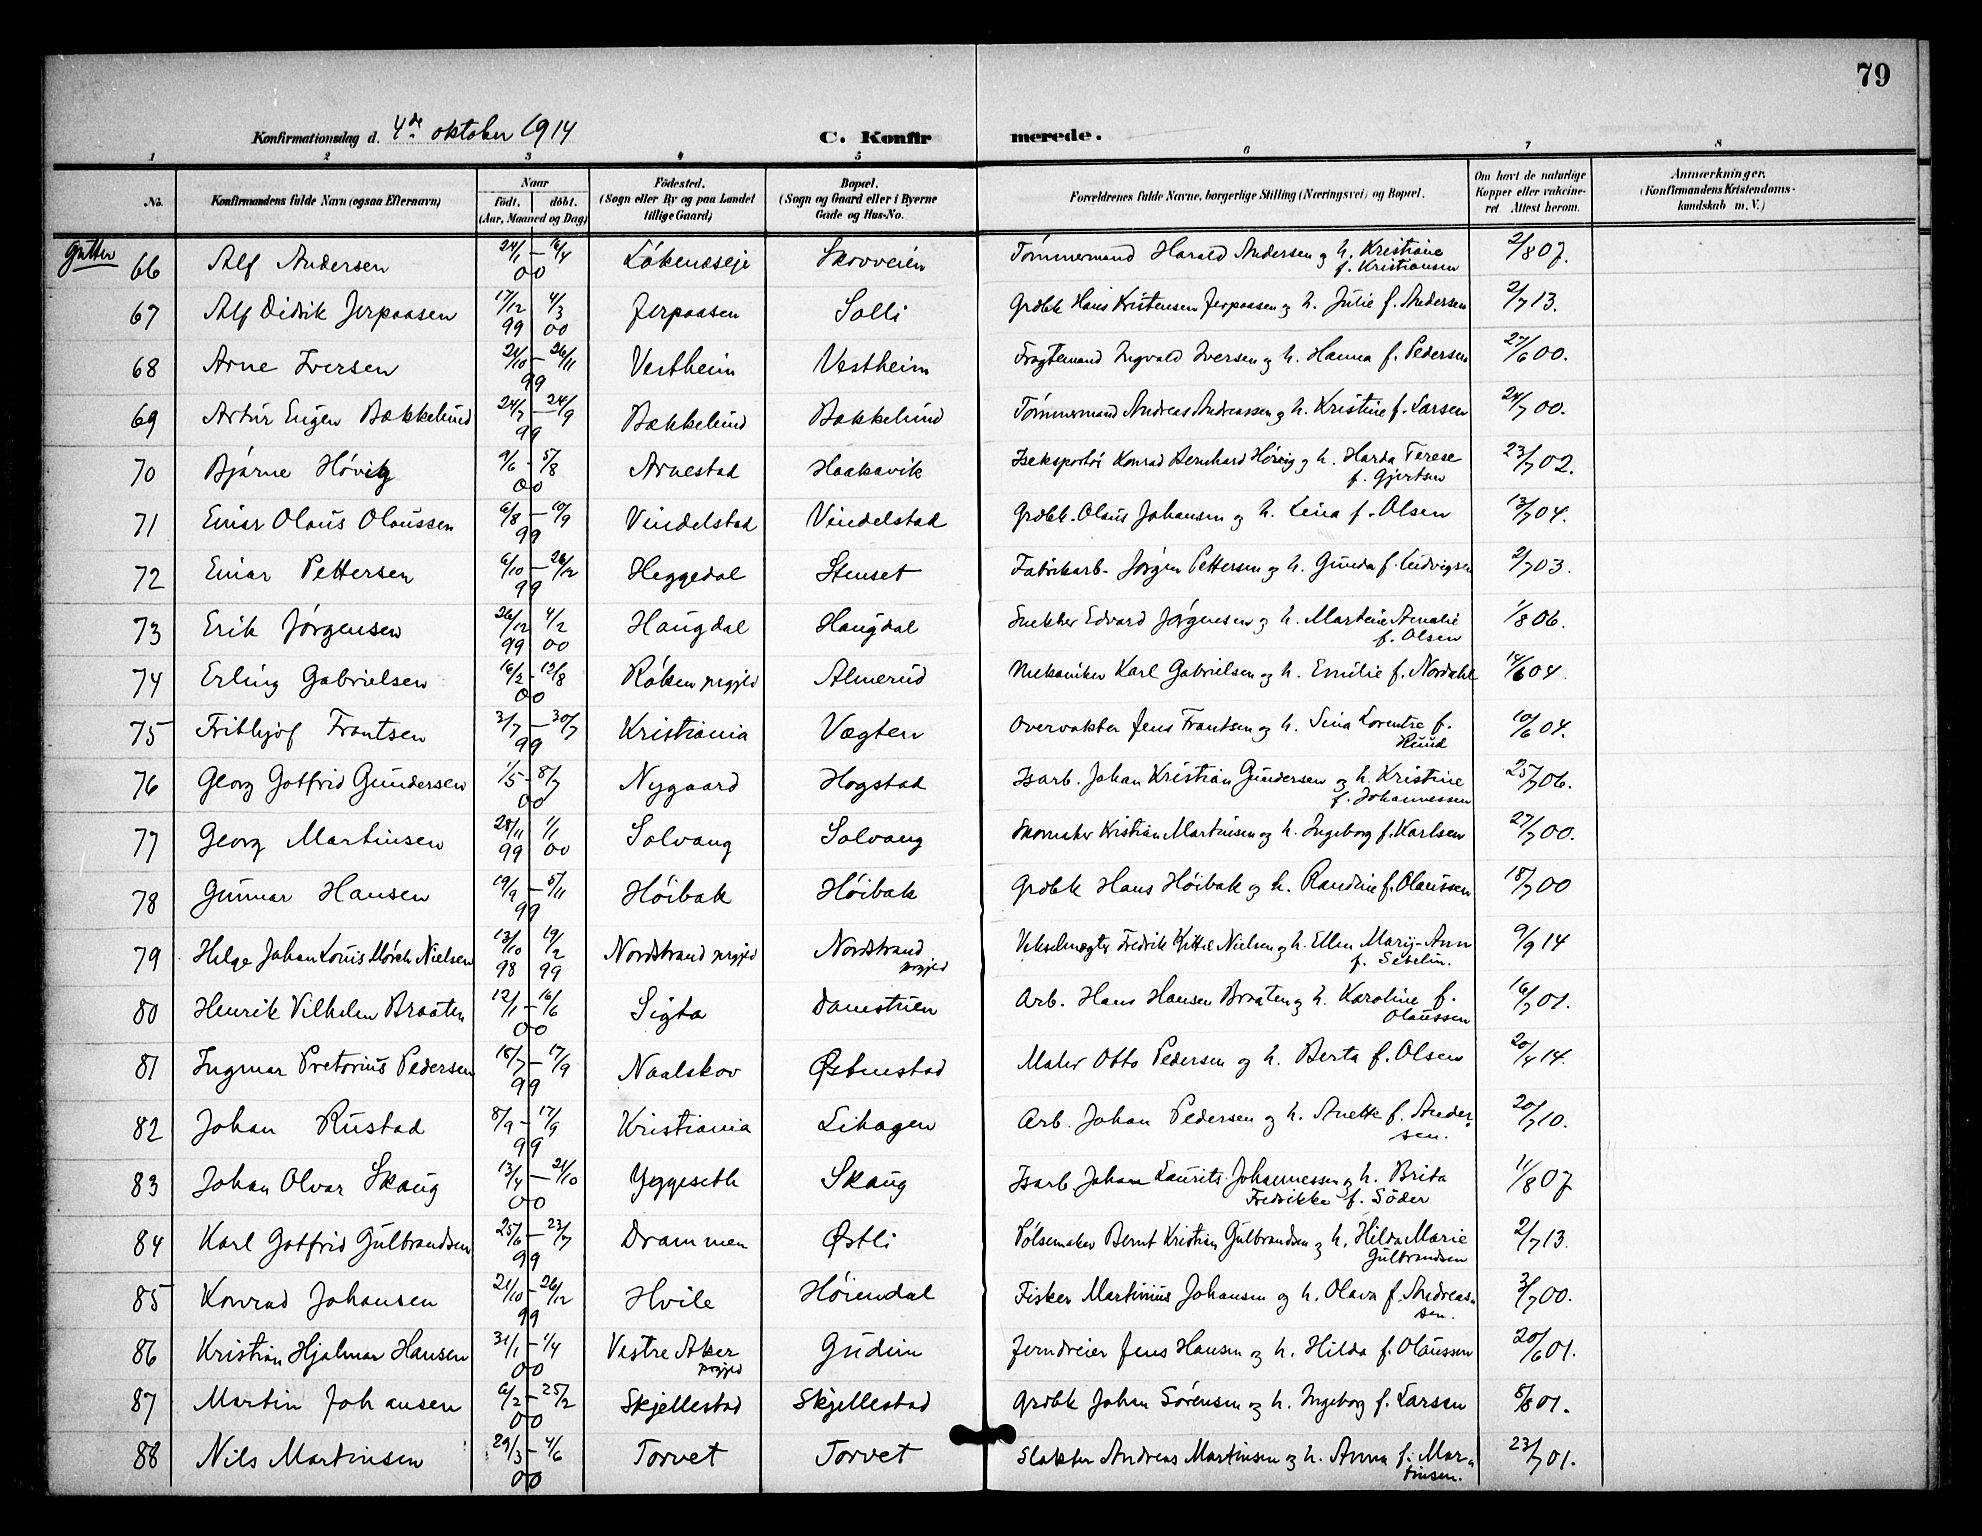 79
Konfirmationsdag d. 4de oktober 1914 C. Konfirmerede.
1 2 3 4 5 6 7 8
No. Konfirmandens fulde Navn (ogsaa Efternavn) Naar født. døbt. (Aar, Maaned og Dag) Fødested. (Sogn eller By og paa Landet tillige Gaard) Bopæl. (Sogn og Gaard eller i Byerne Gade og Hus-No. Forældrenes fulde Navne, borgerlige Stilling (Næringsvei) og Bopæl. Om havt de naturlige Kopper eller vakcineret. Attest herom. Anmærkninger. (Konfirmandens Kristendomskundskab m. V.)
Gutter
66 Alf Andersen 24/1 – 16/4 00 Løkenseje Skovveien Tømmermand Harald Andersen og h. Kristiane f. Kristiansen 2/8 07.
67 Alf Didrik Jerpaasen 17/12 99 4/3 00 Jerpaasen Solli Grdbk Hans Kristensen Jerpaasen og h. Julie f. Andersen 2/7 13.
68 Arne Iversen 21/10 – 26/11 99 Vestheim Vestheim Fragtemand Ingvald Iversen og h. Hanna f. Pedersen 27/6 00.
69 Artur Eugen Bækkelund 24/7 – 24/9 99 Bækkelund Bækkelund Tømmermand Andreas Andreassen og h. Kristine f. Larsen 24/7 00.
70 Bjarne Høvig 9/6 – 5/8 00 Arnestad Haakavik Iseksportø Konrad Bernhard Høvig og h. Harda Terese f. Gjertsen 23/7 02.
71 Einar Olaus Olaussen 6/8 – 10/9 99 Vindelstad Vindelstad Grdbk. Olaus Johansen og h. Lina f. Olsen 13/7 04.
72 Einar Pettersen 6/10 – 26/12 99 Heggedal Stenset Fabrikarb. Jørgen Pettersen og h. Gunda f. Ludvigsen 2/7 03.
73 Erik Jørgensen 26/12 99 4/2 00 Haugdal Haugdal Snekker Edvard Jørgensen og h. Martine Amalie f. Olsen 1/8 06.
74 Erling Gabrielsen 16/2 – 12/8 00 Røken prgjld Almerud Mekaniker Karl Gabrielsen og h. Emilie f. Nordahl 14/6 04.
75 Frithjof Frantsen 3/7 – 30/7 99 Kristiania Vægten Overvokter Jens Frantsen og h. Sina Lorentze f. Ruud 10/6 04.
76 Georg Gotfrid Gundersen 1/5 – 8/7 00 Nygaard Hogstad Isarb. Johan Kristian Gundersen og h. Kristine f. Johannessen 25/7 06.
77 Georg Martinsen 28/11 99 1/1 00 Solvang Solvang Skomaker Kristian Martinsen og h. Ingeborg f. Karlsen 27/7 00.
78 Gunnar Hansen 19/9 – 5/11 99 Høibak Høibak Grdbk Hans Høibak og h. Randine f. Olaussen 18/7 00
79 Helge Johan Louis Mørch Nielsen 13/10 98 19/2 99 Nordstrand prgjld Nordstrand prgjld Fredrik Nielsen og h. Ellen Marij-Ann f. Sebelin. 9/9 14
80 Henrik Vilhelm Braaten 12/1 – 16/6 00 Sigta Arb. Hans Hansen Braaten og h. Karoline f. Olaussen 16/7 01.
81 Ingmar Pretorius Pedersen 18/7 – 17/9 99 Naalskov Østenstad Maler Otto Pedersen og h. Berta f. Olsen 20/4 14.
82 Johan Rustad 8/9 – 17/9 99 Kristiania Lihagen Arb. Johan Pedersen og h. Anette f. Andersen. 20/7 10.
83 Johan Olvar Skaug 13/4 – 21/10 00 Yggeseth Skaug Isarb Johan Laurits Johannessen og h. Brita Fredrikke f. Söder 11/8 07
84 Karl Gotfrid Gulbrandsen 25/6 – 23/7 99 Drammen Østli Pølsemaker Bernt Kristian Gulbrandsen og h. Hilda Marie Gulbrandsen 2/7 13.
85 Konrad Johansen 21/10 – 26/12 99 Hvile Høiendal Fisker Martinius Johansen og h. Olava f. Andreassen. 3/7 00.
86 Kristian Hjalmar Hansen 31/1 – 1/4 00 Vestre Aker prgjld Gudim Jerndreier Jens Hansen og h. Hilda f. Olaussen 20/6 01.
87 Martin Johansen 6/2 – 25/2 00 Skjellestad Skjellestad Grdbk Johan Sørensen og h. Ingeborg f. Larsen 5/8 01.
88 Nils Martinsen 29/3 – 4/6 00 Torvet Torvet Slakter Andreas Martinsen og h. Anna f. Martinsen. 23/7 01.